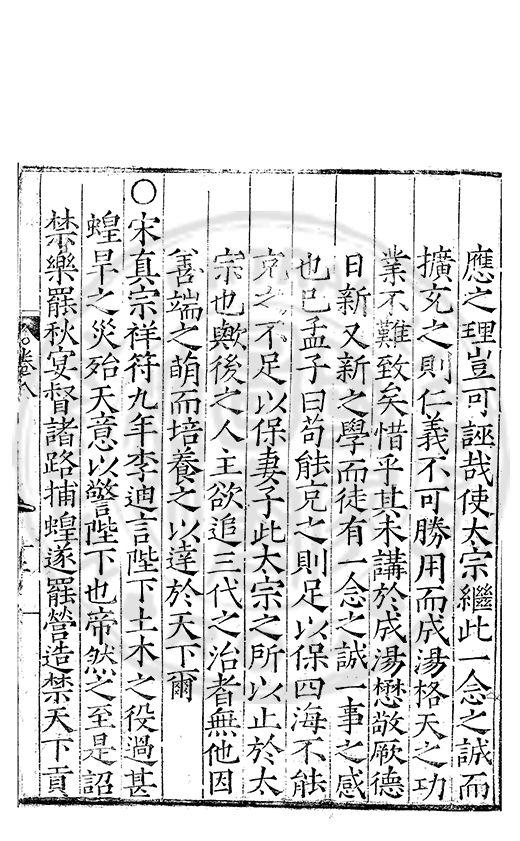 應之理豈可誣哉使太宗繼此一念之誠而
擴充之則仁義不可勝用而成湯格天之功
業不難致矣惜乎其未講於成湯懋敬厥德
日新又新之學而徒有一念之誠一事之感
也已孟子曰苟能充之則足以保四海不能
充之不足以保妻子此太宗之所以止於太
宗也歟後之人主欲追三代之治者無他因
善端之萌而培養之以達於天下爾
○宋真宗祥符九年李迪言陛下土木之役過甚
蝗旱之災殆天意以警陛下也帝然之至是詔
禁樂罷秋宴督諸路捕蝗遂罷營造禁天下貢
卷八